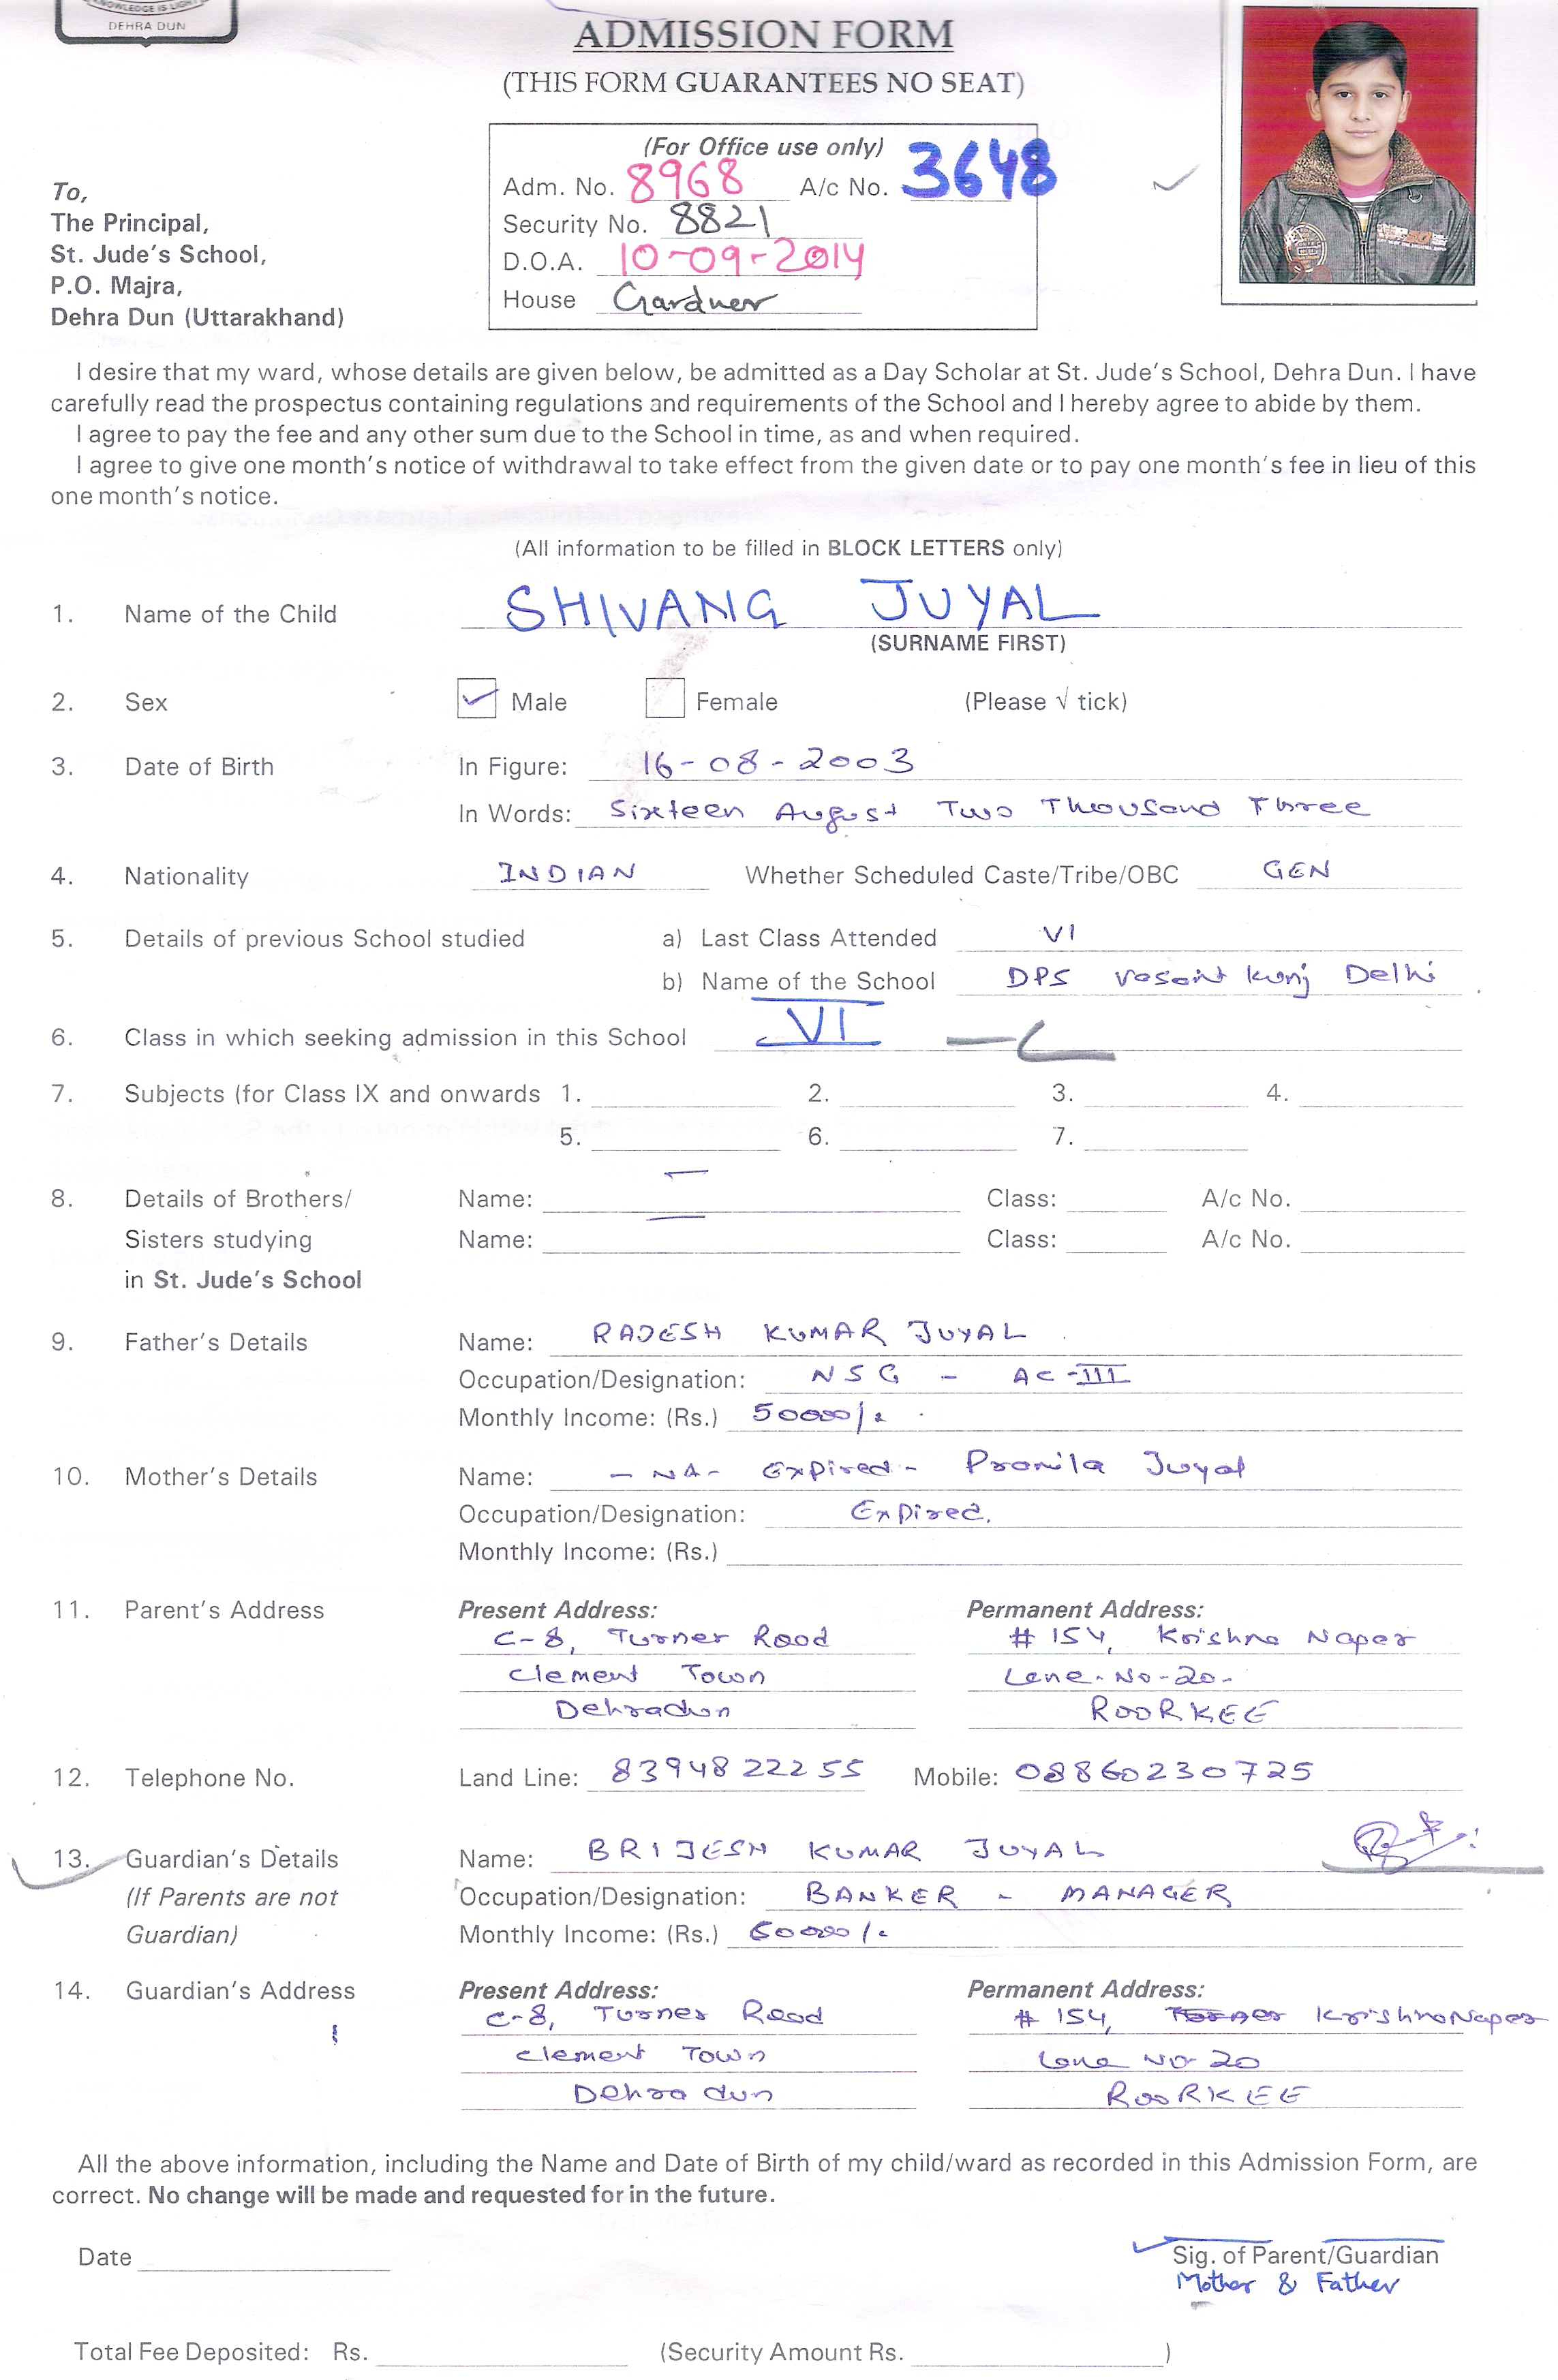 KNOWLEDGE IS LIGHT
DEHRA DUN
ADMISSION FORM
(THIS FORM GUARANTEES NO SEAT)
(For Office use only)
Adm. No. 8968 A/c No. 3648
Security No. 8821
D.O.A. 10-09-2014
House Gardner
To,
The Principal,
St. Jude's School,
P.O. Majra,
Dehra Dun (Uttarakhand)
I desire that my ward, whose details are given below, be admitted as a Day Scholar at St. Jude's School, Dehra Dun. I have
carefully read the prospectus containing regulations and requirements of the School and I hereby agree to abide by them.
I agree to pay the fee and any other sum due to the School in time, as and when required.
I agree to give one month's notice of withdrawal to take effect from the given date or to pay one month's fee in lieu of this
one month's notice.
(All information to be filled in BLOCK LETTERS only)
1. Name of the Child SHIVANG JUYAL
(SURNAME FIRST)
2. Sex Male Female (Please √ tick)
3. Date of Birth In Figure: 16-08-2003
In Words: Sixteen August Two Thousand Three
4. Nationality INDIAN Whether Scheduled Caste/Tribe/OBC GEN
5. Details of previous School studied a) Last Class Attended VI
b) Name of the School DPS Vasant Kunj Delhi
6. Class in which seeking admission in this School VI - C
7. Subjects (for Class IX and onwards 1. 2. 3. 4.
5. 6. 7.
8. Details of Brothers/ Name: Class: A/c No.
Sisters studying Name: Class: A/c No.
in St. Jude's School
9. Father's Details Name: RAJESH KUMAR JUYAL
Occupation/Designation: NSG - AC-III
Monthly Income: (Rs.) 50000/-
10. Mother's Details Name: - NA - Expired - Promila Juyal
Occupation/Designation: Expired.
Monthly Income: (Rs.)
11. Parent's Address Present Address: Permanent Address:
C-8, Turner Road # 154, Krishna Nagar
Clement Town Lane-No-20-
Dehradun ROORKEE
12. Telephone No. Land Line: 8394822255 Mobile: 08860230725
13. Guardian's Details Name: BRIJESH KUMAR JUYAL
(If Parents are not Occupation/Designation: BANKER - MANAGER
Guardian) Monthly Income: (Rs.) 60000/-
14. Guardian's Address Present Address: Permanent Address:
C-8, Turner Road # 154, Krishna Nagar
Clement Town Lane No-20
Dehradun ROORKEE
All the above information, including the Name and Date of Birth of my child/ward as recorded in this Admission Form, are
correct. No change will be made and requested for in the future.
Date Sig. of Parent/Guardian
Mother & Father
Total Fee Deposited: Rs. (Security Amount Rs. )